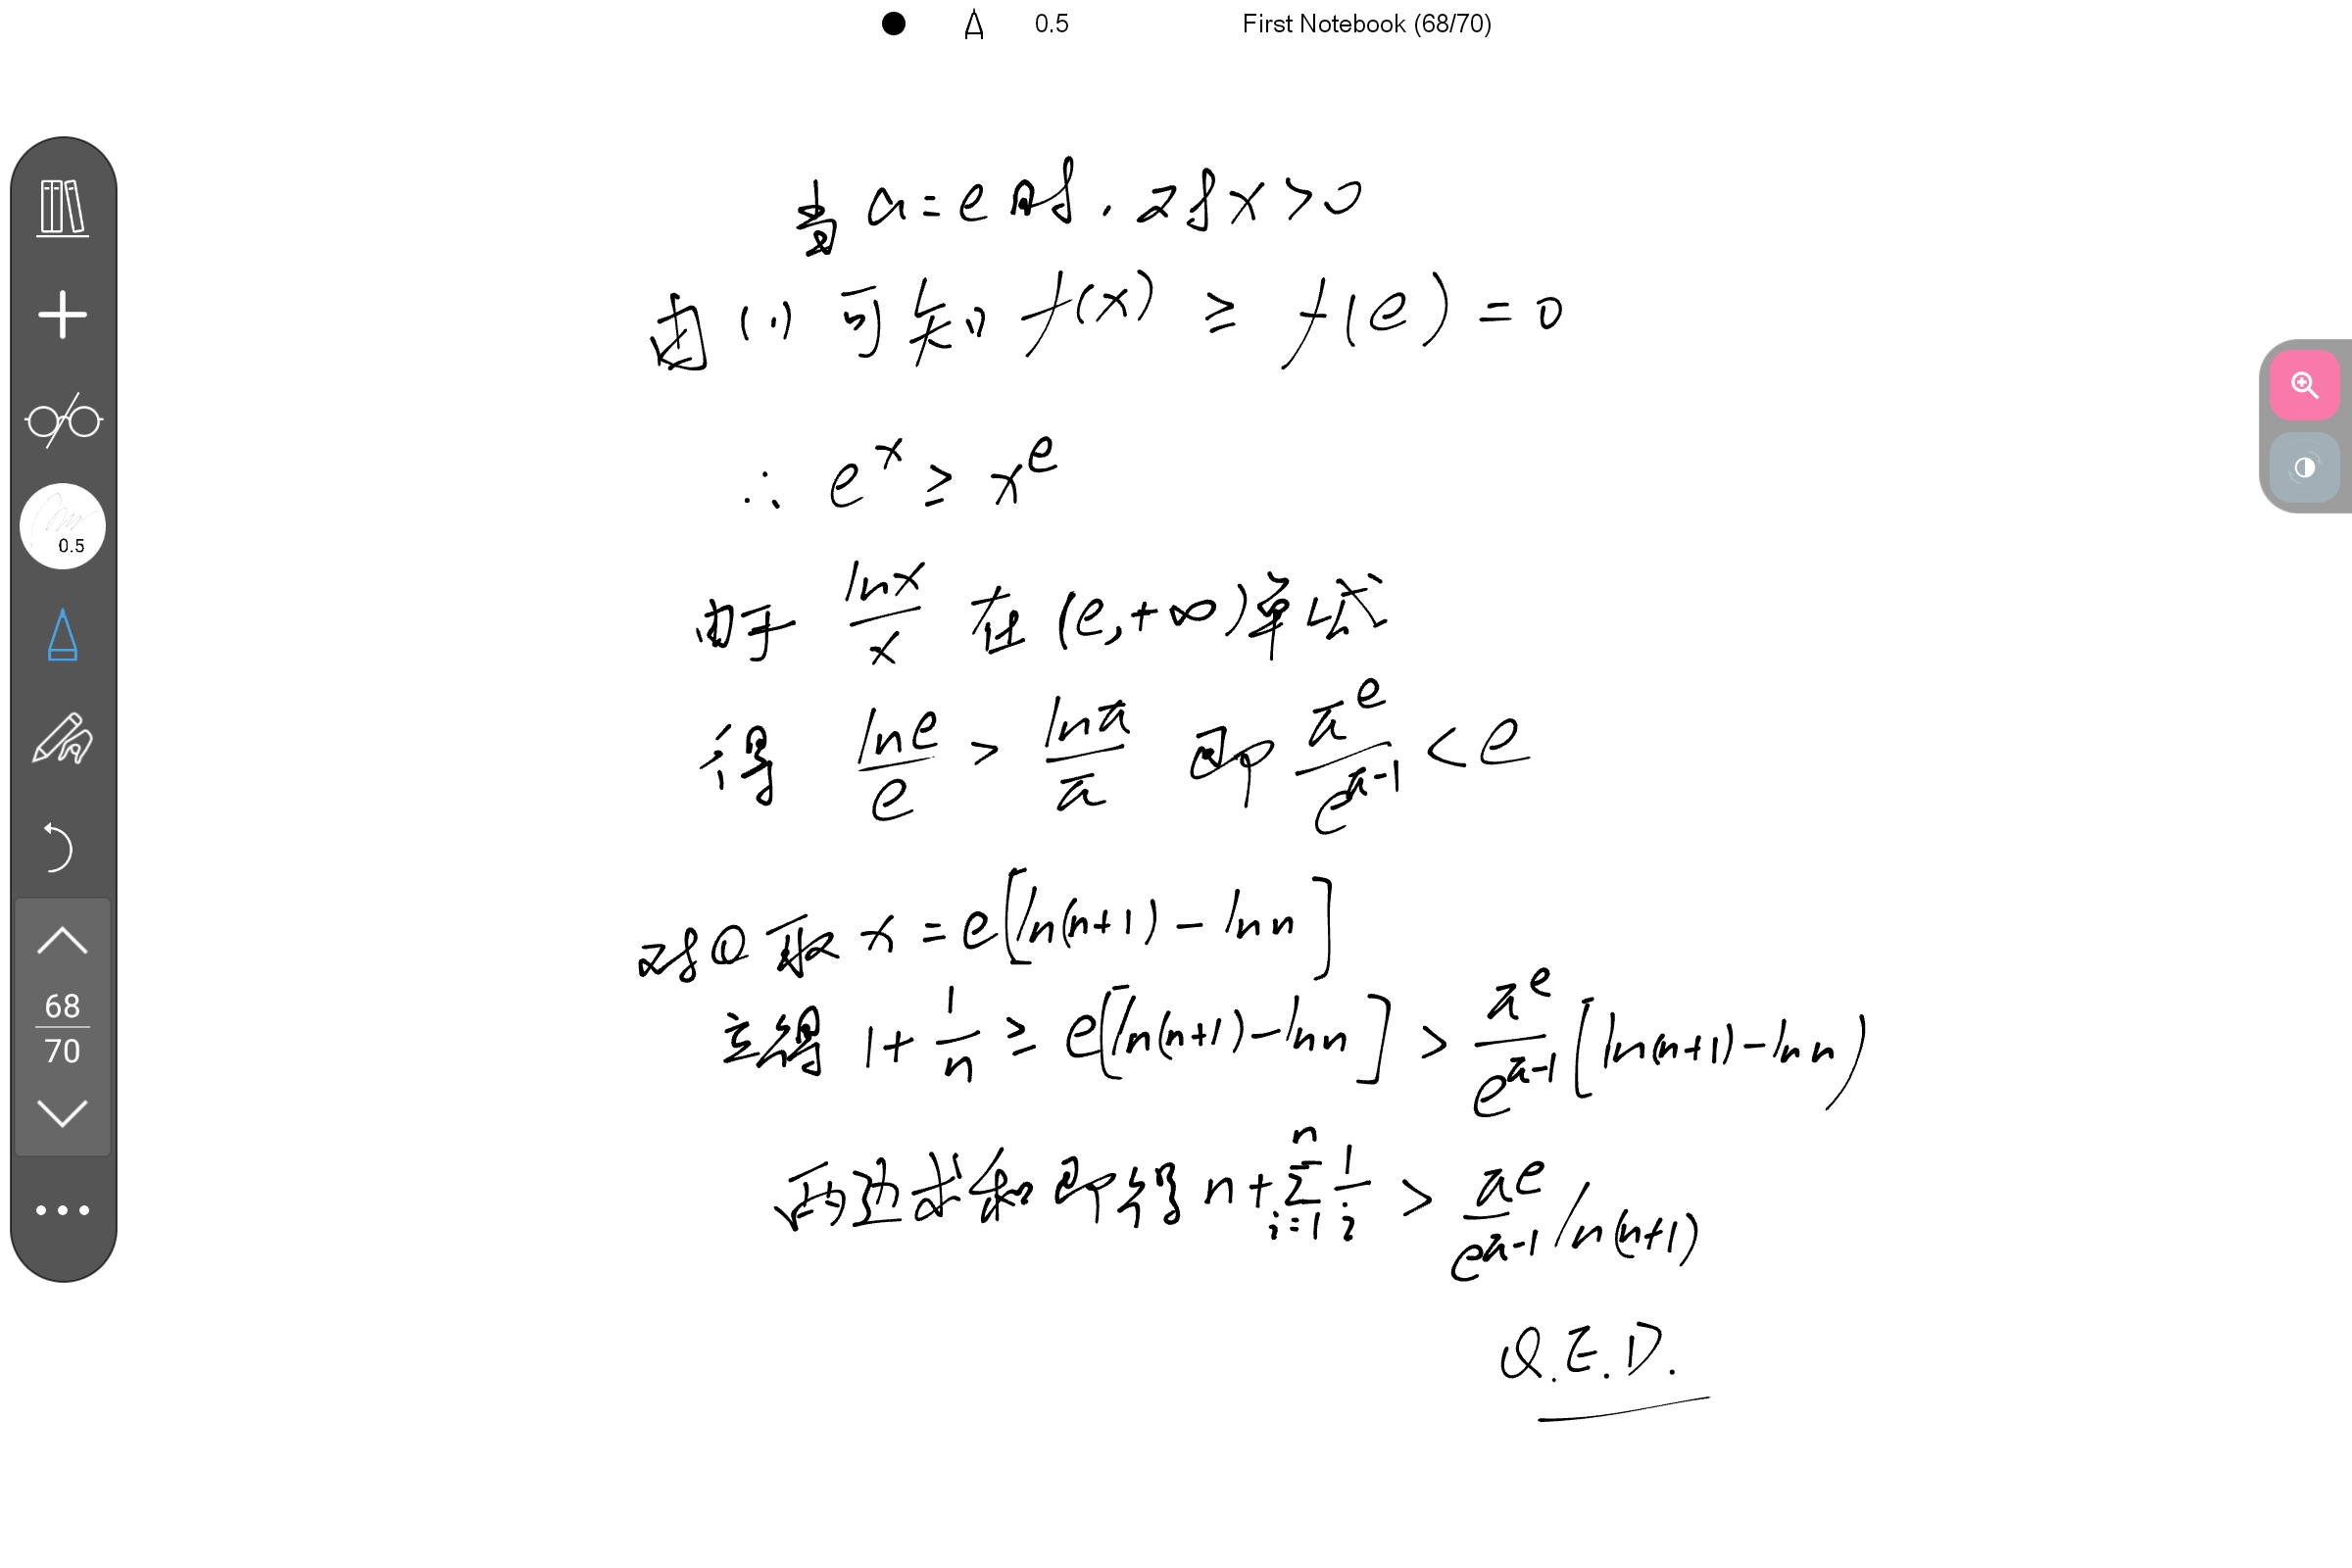 0.5 First Notebook (68/70)
当 a=e 时, 对 x>0
由(1) 可知 f(x) ≥ f(e) = 0
∴ e^x ≥ x^e
由于 lnx/x 在 (e,+∞) 单减
得 lne/e > lnπ/π 即 π^e/e^(π-1) < e
对①取 x = e[ln(n+1) - ln n]
立得 1+1/n ≥ e[ln(n+1)-ln n] > π^e/e^(π-1) [ln(n+1)-ln n)
两边求和 即得 n+∑_{i=1}^{n} 1/i > π^e/e^(π-1) ln(n+1)
Q.E.D.
0.5
68
70